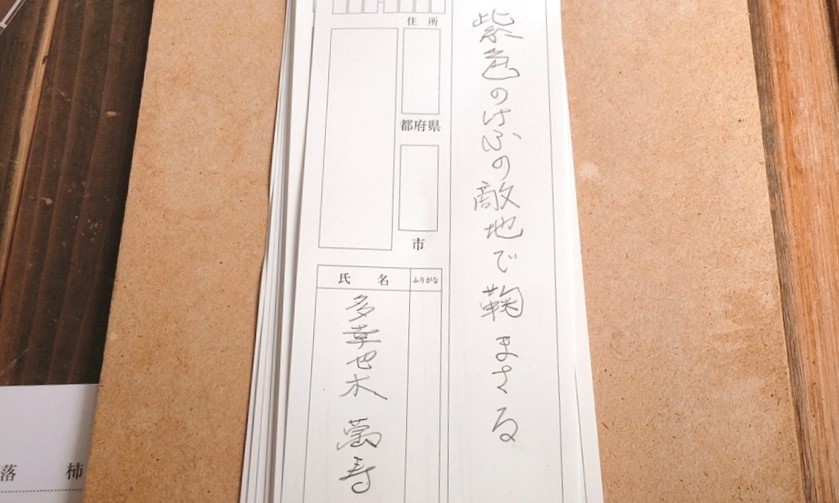 紫色のけふの敵地で鞠まさる
住所
都府県
市
氏名
ふりがな
多幸也木 萬寿
落柿